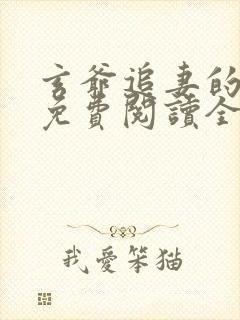 玄爺追妻的
免費閱讀全
我愛笨貓